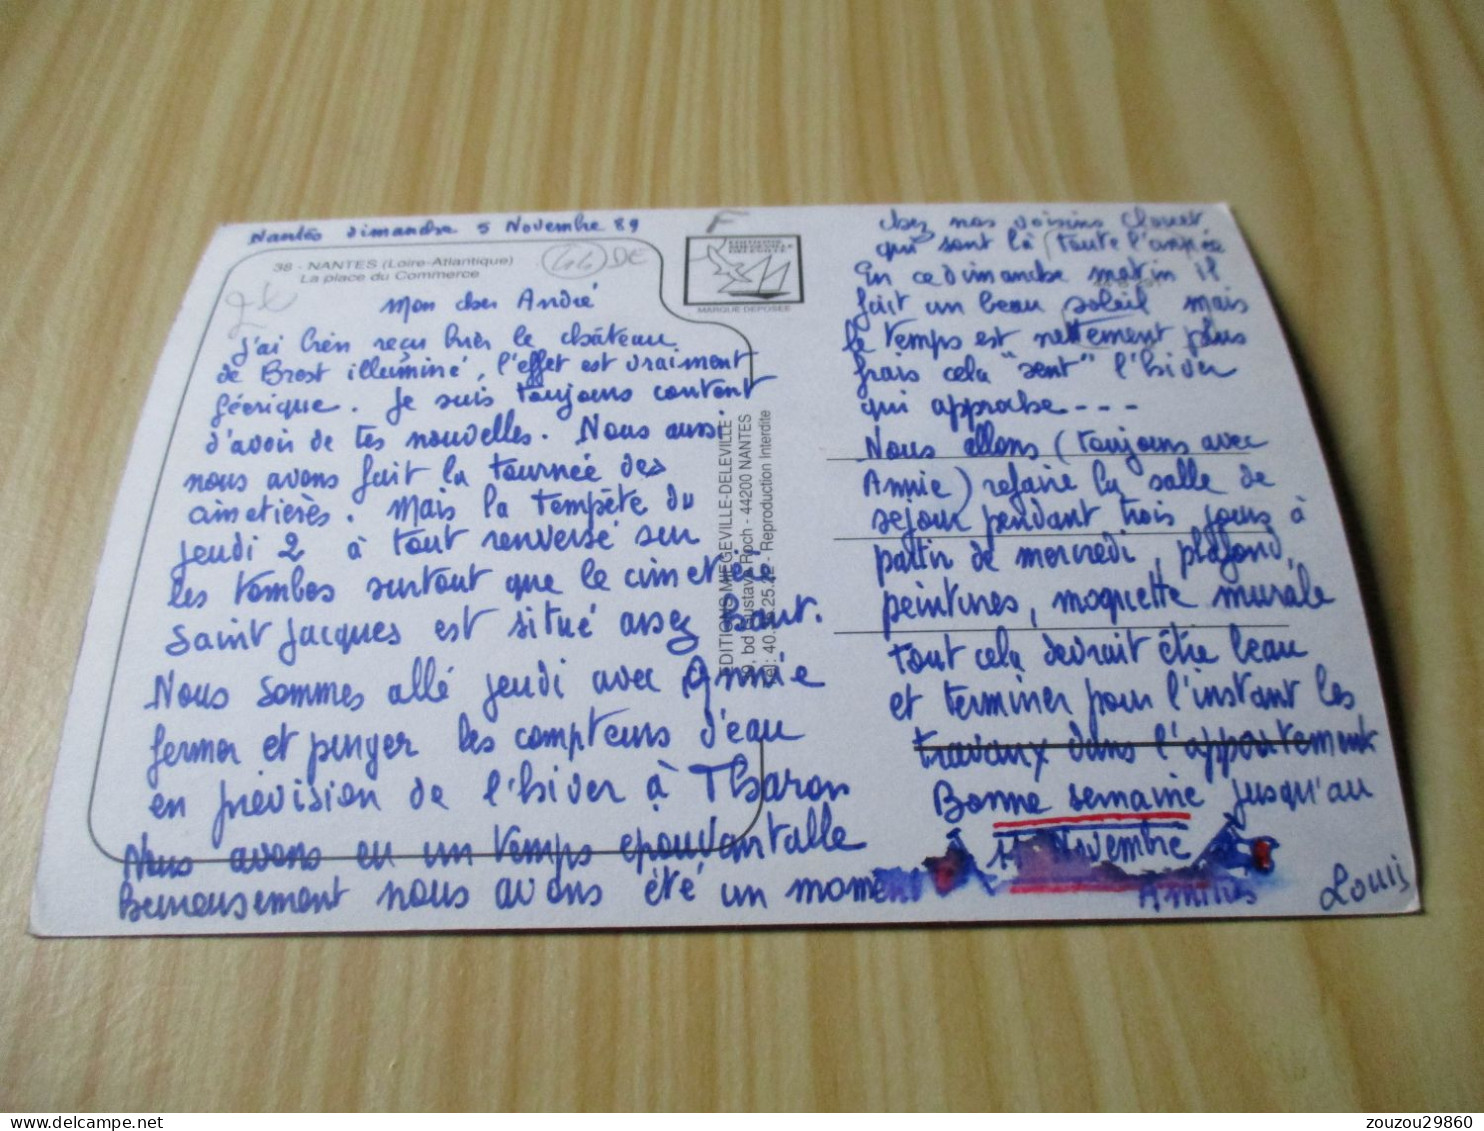 Nantes dimanche 5 Novembre 89
F
44 DE
38 - NANTES (Loire-Atlantique)
La place du Commerce
MARQUE DEPOSÉE
Mon cher André
J'ai bien reçu hier le château
de Brest illuminé, l'effet est vraiment
féerique. Je suis toujours content
d'avoir de tes nouvelles. Nous aussi
nous avons fait la tournée des
cimetières. Mais la tempête du
jeudi 2 à tout renversé sur
les tombes surtout que le cimetière
Saint Jacques est situé assez haut.
Nous sommes allé jeudi avec Annie
fermer et purger les compteurs d'eau
en prévision de l'hiver à Tharon
Nous avons eu un temps epouvantable
heureusement nous avons été un moment
EDITIONS MIEGEVILLE-DELEVILLE
bd Gustave Roch - 44200 NANTES
Tél : 40. .25.22 - Reproduction Interdite
chez nos voisins Clouet
qui sont là toute l'année
En ce dimanche matin il
fait un beau soleil mais
le temps est nettement plus
frais cela "sent" l'hiver
qui approche - - -
Nous allons (toujours avec
Annie) refaire la salle de
sejour pendant trois jours à
partir de mercredi, plafond,
peintures, moquette murale
tout cela devrait être beau
et terminer pour l'instant les
travaux dans l'appartement
Bonne semaine jusqu'au
11 Novembre
Amitiés
Louis
zouzou29860